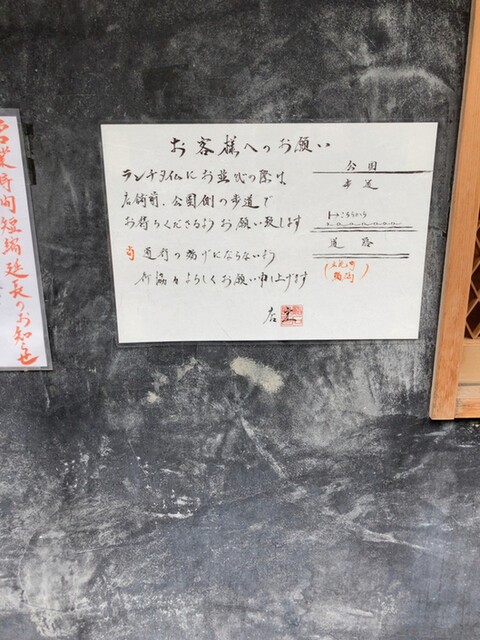 お客様へのお願い
ランチタイムにお並びの際は
店舗前、公園側の歩道で
お待ちくださるようお願い致します
通行の妨げにならないよう
御協力よろしくお願い申し上げます
店主
公園
歩道
こちらから
道路
営業時間短縮延長のお知らせ